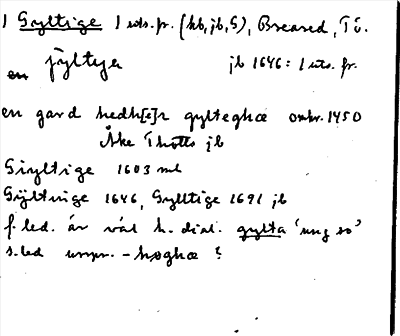 1 Gyltige 1 uts. fr. (kb, jb, S), Breared, Tö.
en jyltya jb 1646: 1 uts. fr.
en gard hedh[e]r gylteghæ omkr. 1450
Åke Thotts jb
Giyltige 1603 ml
Gÿltinge 1646, Gylltige 1691 jb
f. led. är väl h. dial. gylta 'ung so'
s. led urspr. -høghæ ?